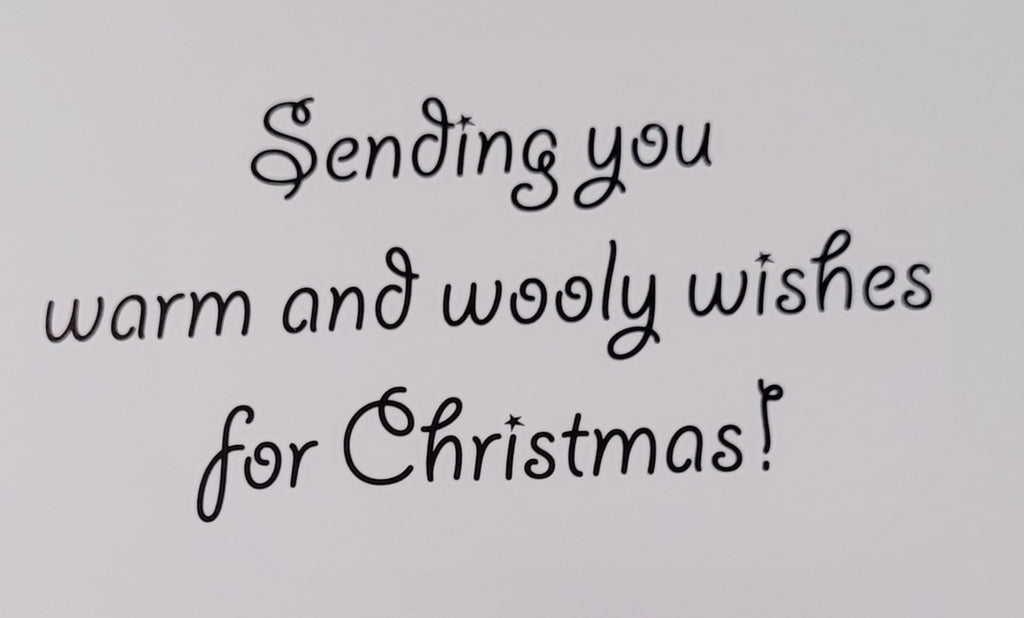 Sending you
warm and wooly wishes
for Christmas!